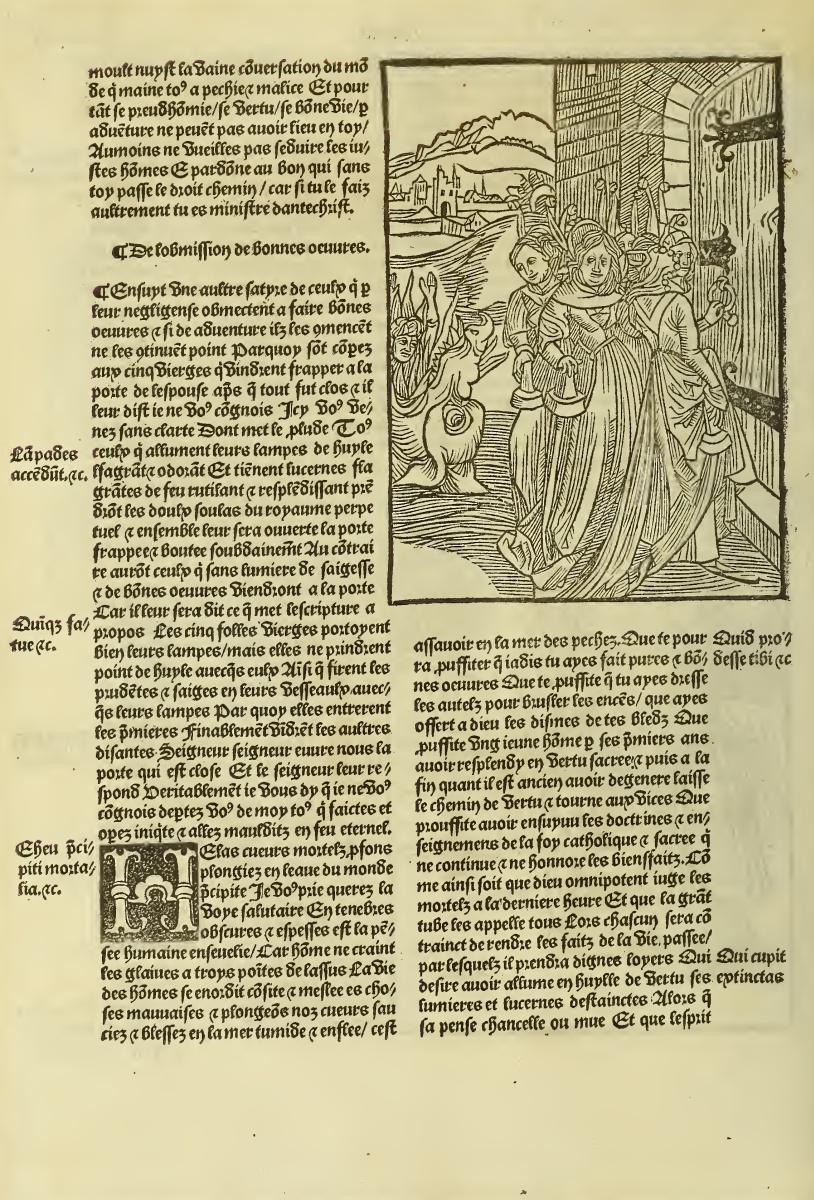 moult nuyst la vaine cõuersation du mõ
de q̃ maine to⁹ a pechie ⁊ malice Et pour
tãt se preudhõmie/se vertu/se bõne vie/p
aduẽture ne peuẽt pas auoir lieu en toy/
Aumoins ne vueilles pas seduire les iu/
stes hõmes E pardõne au bon qui sans
toy passe le droit chemin/ car si tu le faiz
aultrement tu es ministre dantechrist.
¶ De lobmission de bonnes oeuures.
¶ Ensuyt vne aultre satyre de ceulx q̃ p
leur negligense obmectent a faire bõnes
oeuures ⁊ si de aduenture ilz les ꝯmencẽt
ne les ꝯtinuẽt point Parquoy sõt cõpez
aux cinq vierges q̃ vindrent frapper a la
porte de lespouse aps̃ q̃ tout fut clos ⁊ il
leur dist ie ne vo⁹ cõgnois Icy vo⁹ ve/
nez sans clarte Dont met le ,plude To⁹
Lãpades
accẽdũt.⁊c.
ceulx q̃ allument leurs lampes de huyle
flagrãt ⁊ odorãt Et tiẽnent lucernes fla
grãtes de feu rutilant ⁊ resplẽdissant prẽ
drõt les doulx soulas du royaume perpe
tuel ⁊ ensemble leur sera ouuerte la porte
frappee ⁊ boutee soubdainemẽt Au cõtrai
re aurõt ceulx q̃ sans lumiere de saigesse
⁊ de bõnes oeuures viendront a la porte
Car il leur sera dit ce q̃ met lescripture a
Quiq̃z fa/
tue ⁊c.
propos Les cinq folles vierges portoyent
bien leurs lampes/mais elles ne prindrent
point de huyle auecq̃s eulx Aisi q̃ firent les
prudẽtes ⁊ saiges en leurs vesseaulx auec/
q̃s leurs lampes Par quoy elles entrerent
les p̃mieres Finablemẽt vidrẽt les aultres
disantes Seigneur seigneur euure nous la
porte qui est close Et le seigneur leur re/
spond Veritablemẽt ie vous dy q̃ ie ne vo⁹
cõgnois deptez vo⁹ de moy to⁹ q̃ faictes et
operez iniq̃te ⁊ allez maulditz en feu eternel.
Eheu p̃ci/
piti morta/
lia.⁊c.
HElas cueurs mortelz ,pfons
plongiez en leaue du monde
p̃cipite Je vo⁹ prie querez la
voye salutaire En tenebres
obscures ⁊ espesses est la pẽ/
see humaine enseuelie/Car hõme ne craint
les glaiues a troys poĩtes de lassus La vie
des hõmes se enordit cõsite ⁊ meslee es cho/
ses mauuaises ⁊ plongeõs noz cueurs sau
ciez ⁊ blessez en la mer tumide ⁊ enflee/ cest
assauoir en la mer des pechez. Que te pour
ra ,puffiter q̃ iadis tu ayes fait pures ⁊ bõ/
Quid pro/
desse tibi ⁊c
nes oeuures Que te ,puffite q̃ tu ayes dresse
les autelz pour brusler les encẽs/ que ayes
offert a dieu les disines de tes bledz Que
,puffite vng ieune hõme p ses p̃miers ans
auoir resplendy en vertu sacree ⁊ puis a la
fin quant il est ancien auoir degenere laisse
le chemin de vertu ⁊ tourne aux vices Que
prouffite auoir ensuyuy les doctrines ⁊ en/
seignemens de la foy catholique ⁊ sacree q̃
ne continue ⁊ ne honnore les bienffaitz. Cõ
me ainsi soit que dieu omnipotent iuge les
mortelz a la derniere heure Et que la grãt
tube les appelle tous Lors chascun sera cõ
trainct de rendre les faitz de la vie passee/
par lesquelz il prendra dignes loyers Qui
Qui cupit
extinctas
desire auoir allume en huylle de vertu ses
lumieres et lucernes destainctes Alors q̃
sa pense chancelle ou mue Et que lesprit